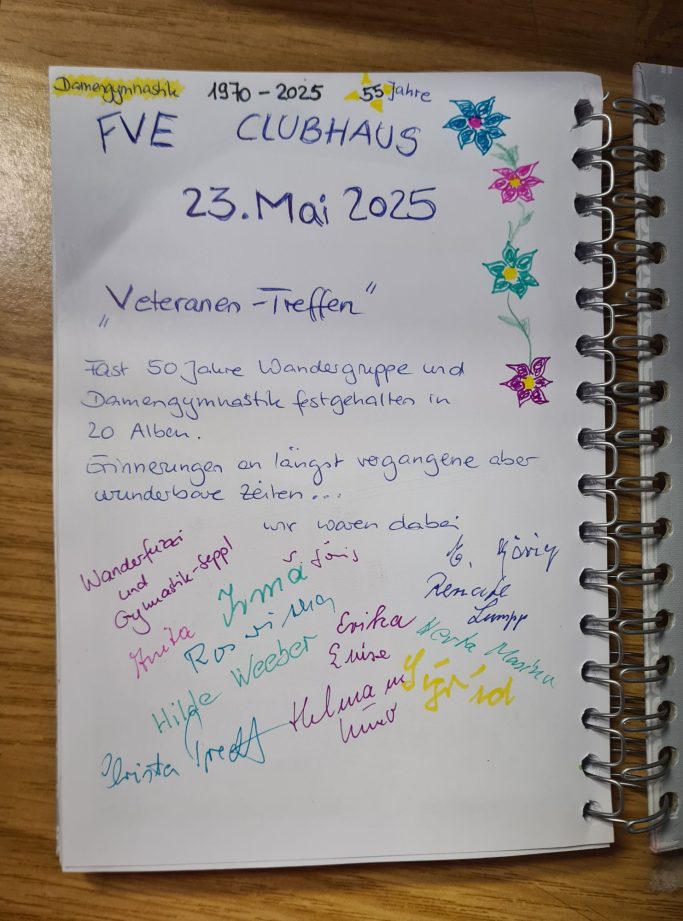 Damengymnastik 1970 - 2025 55 Jahre
FVE CLUBHAUS
23. Mai 2025
"Veteranen - Treffen"
Fast 50 Jahre Wandergruppe und
Damengymnastik festgehalten in
20 Alben.
Erinnerungen an längst vergangene aber
wunderbare Zeiten...
wir waren dabei
Wanderfuzzi
und
Gymnastik-Seppl
Irma
Anita
Roswitha
Erika
Renate
Lumpp
Herta
Hilde Weeber
Luise
Sigrid
Helma
Christa